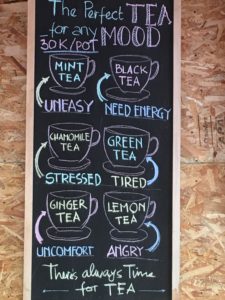 The Perfect TEA
for any MOOD
30K/POT
MINT TEA
BLACK TEA
UNEASY
NEED ENERGY
CHAMOMILE TEA
GREEN TEA
STRESSED
TIRED
GINGER TEA
LEMON TEA
UNCOMFORT
ANGRY
There's always Time
for TEA